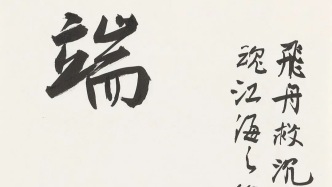 飛舟救沉
魂江海之
端